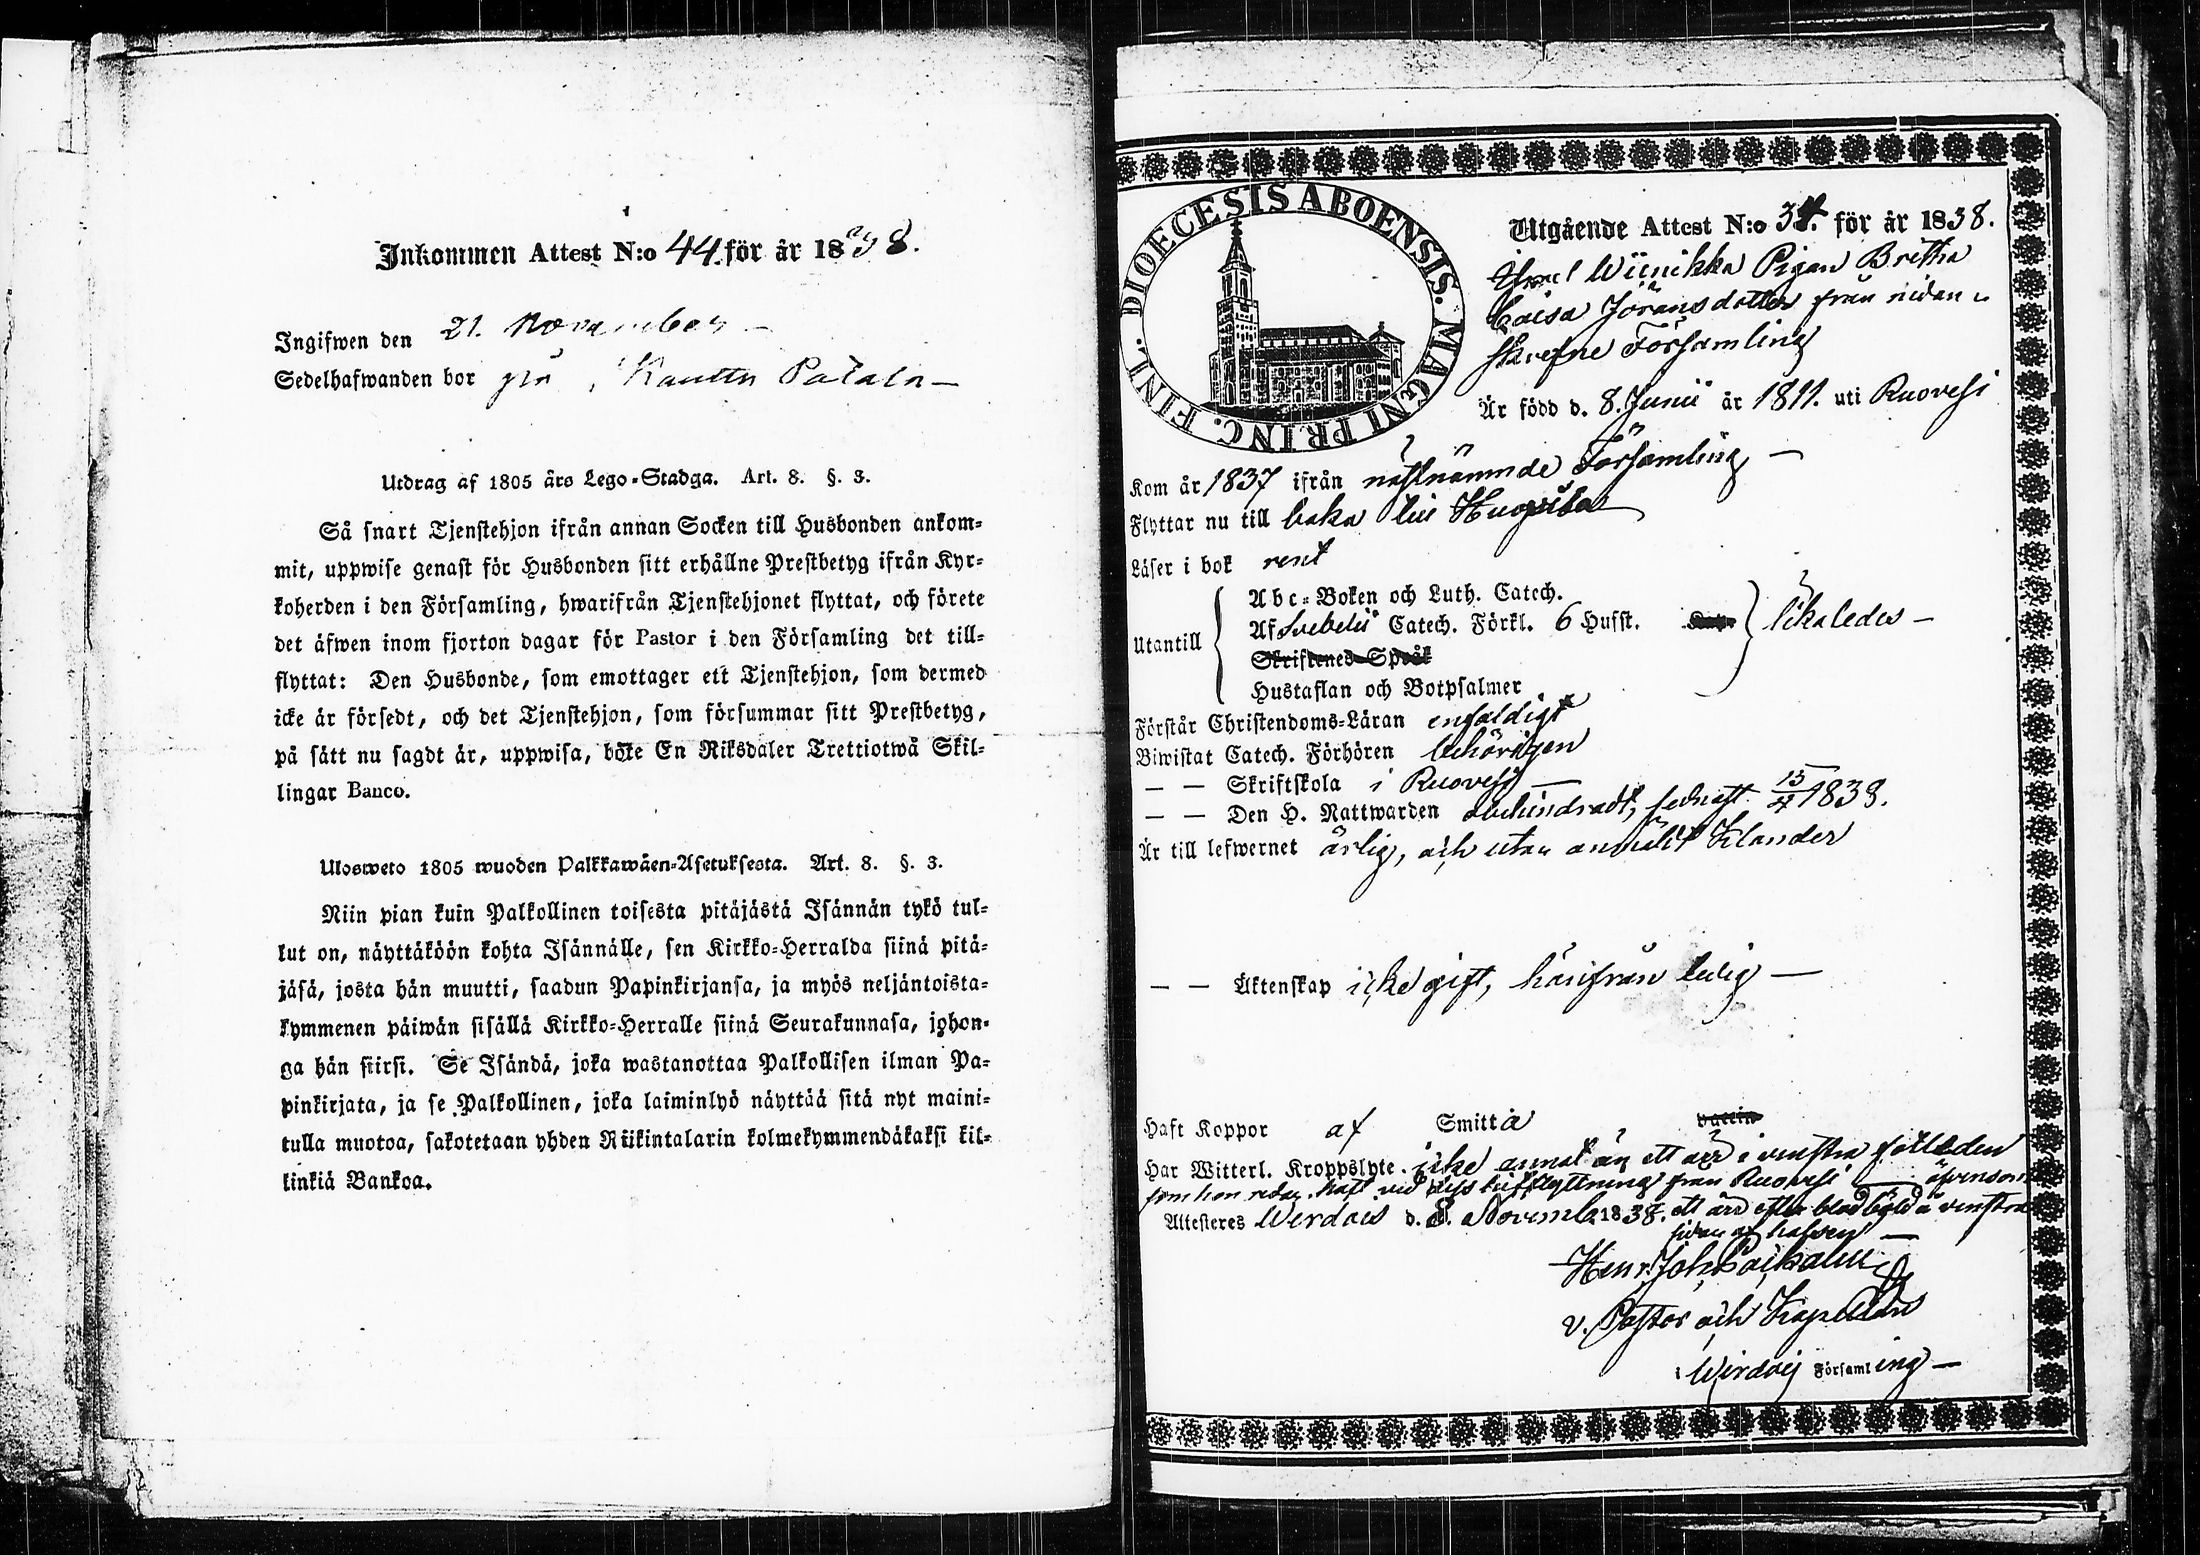 Inkommen Attest N:o 44. för år 1838.
Ingifwen den 21. November –
Sedelhafwanden bor på Pålala –
Utdrag af 1805 års Lego-Stadga. Art. 8. §. 3.
Så snart Tjenstehjon ifrån annan Socken till Husbonden ankom-
mit, uppwise genast för Husbonden sitt erhållne Prestbetyg ifrån Kyr-
koherden i den Församling, hwarifrån Tjenstehjonet flyttat, och förete
det äfwen inom fjorton dagar för Pastor i den Församling det till-
flyttat: Den Husbonde, som emottager ett Tjenstehjon, som dermed
icke är försedt, och det Tjenstehjon, som försummar sitt Prestbetyg,
på sätt nu sagdt är, uppwisa, böte En Riksdaler Trettiotwå Skil-
lingar Banco.
Ulosweto 1805 wuoden Palkkawäen-Asetuksesta. Art. 8. §. 3.
Niin pian kuin Palkollinen toisesta pitäjästä Isännän tykö tul-
lut on, näyttäköön kohta Isännälle, sen Kirkko-Herralda siinä pitä-
jäsä, josta hän muutti, saadun Papinkirjansa, ja myös neljäntoista-
kymmenen päiwän sisällä Kirkko-Herralle siinä Seurakunnasa, johon-
ga hän siirsi. Se Isändä, joka wastanottaa Palkollisen ilman Pa-
pinkirjata, ja se Palkollinen, joka laiminlyö näyttää sitä nyt maini-
tulla muotoa, sakotetaan yhden Riikintalarin kolmekymmendäkaksi kil-
linkiä Bankoa.
DIOECESIS ABOENSIS. MAGNI PRINC. FINL.
Utgående Attest N:o 34. för år 1838.
Pigan Britha
Caisa Jöransdotter från nedan
skrefne Församling
Är född d. 8. Junii år 1811. uti Ruovesi
Kom år 1837 ifrån nästnämnde Församling –
Flyttar nu till baka till
Läser i bok rent
Utantill
Abc-Boken och Luth. Catech.
Af Svebelii Catech. Förkl. 6 Hufst.
Skriftenes Språk
Hustaflan och Botpsalmer
likaledes –
Förstår Christendoms-Läran enfaldigt
Biwistat Catech. Förhören behörigen
– – Skriftskola i Ruovesi –
– – Den H. Nattwarden obehindradt, sednast 15/4 1838.
Är till lefwernet ärlig, och utan anmält klander
– – Äktenskap icke gift, härifrån ledig –
Haft Koppor af Smitta vaccin
Har Witterl. Kroppslyte. icke annat än ett ärr i venstra
som hon redan haft vid dess hitflyttning från Ruovesi – äfvensom
Attesteres Werdois d. 8. Novemb. 1838. ett ärr efter å venstra
sidan af halsen –
Henr. Joh.
v. Pastor och Kapellan
i Wirdois Församling –